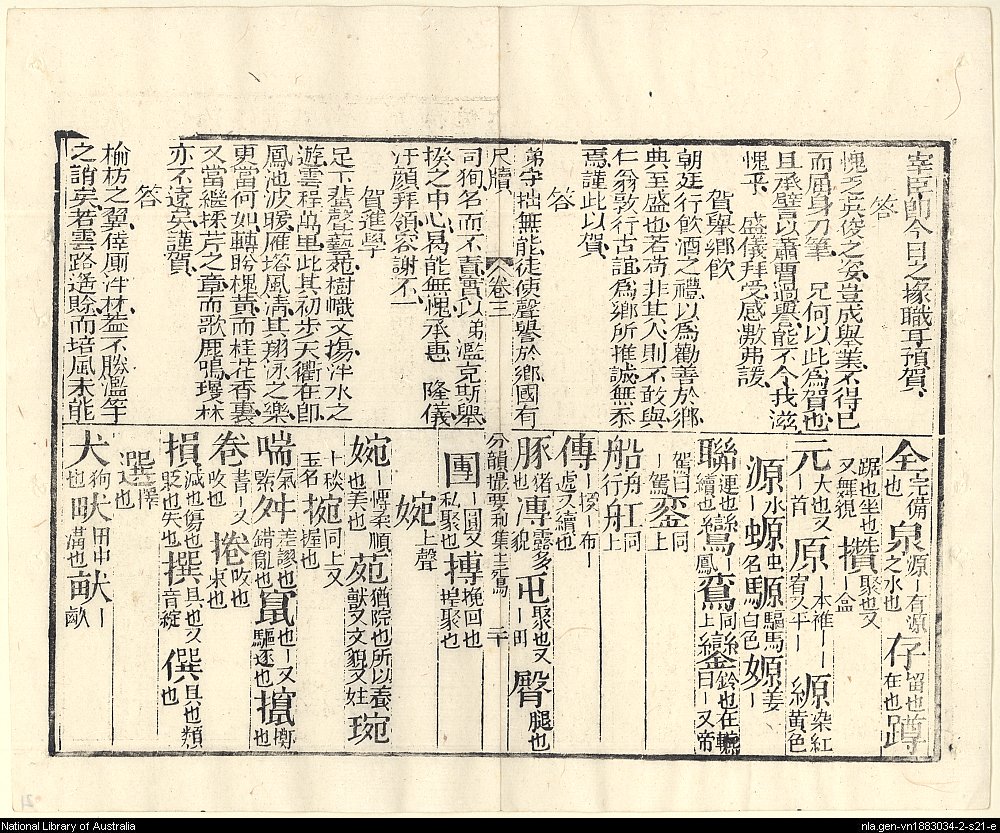 宰臣師今日之掾職耳預賀
答
愧乏英俊之姿豈成舉業不得已
而屈身刀筆 兄何以此為賀也
且承譬以蕭曹過與能不令我滋
愧乎 盛儀拜受感激弗諼
賀舉鄉飲
朝廷行飲酒之禮以為勸善於鄉
典至盛也若苟非其人則不敢與
仁翁敦行古誼為鄉所推誠無忝
焉謹此以賀
答
弟守拙無能徒使聲譽於鄉國有
尺牘 卷三
司狥名而不責實以弟濫充斯舉
揆之中心曷能無愧承惠 隆儀
汙顏拜領容謝不一
賀進學
足下蜚聲藝苑樹幟文塲泮水之
遊雲程萬里此其初步天衢在即
鳳池波暖雁塔風清其翔泳之樂
更當何如轉盼槐黃而桂花香裏
又當繼採芹之章而歌鹿鳴瓊林
亦不遠矣謹賀
答
榆枋之翼倖厠泮林葢不勝濫竽
之誚矣若雲路遙賒而培風未能
全完備也 泉源丨有源之水也 存留也在也 蹲
踞也坐也又舞視 攢聚也又丨盒
元大也又丨首 原丨本雅丨宥又平丨 縓染紅黃色
源水丨 螈虫名 騵驅馬白色 嫄姜丨
聯連也續也 鸞丨鳳 鵉同上 鑾鈴也在軛曰丨又帝
駕曰丨駕 銮同上
船舟丨行 舡同上
傳丨授丨布處又續也
豚猪也 漙露多貌 屯聚也又丨田 臀腿也
分韻撮要利集 二十
團丨圓又私聚也 摶挽回也捏聚也
婉上聲
婉丨愕柔順也美也 苑猶院也所以養獸又文貌又姓 琬
丨琰玉名 捥同上又握也
喘氣丨 舛差謬也錯亂也 竄也丨又驅逐也 攛丨擲也
卷書丨又收也 捲收也束也
損減也傷也貶也失也 撰具也又音綻 僎具也類也
選擇也
犬狗也 畎田中丨溝也 畝
National Library of Australia
nla.gen-vn1883034-2-s21-e